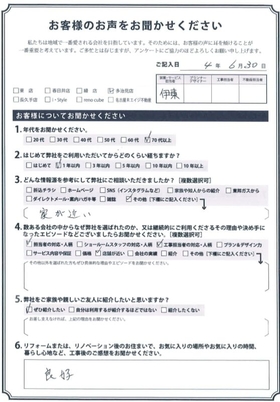 お客様のお声をお聞かせください
私たちは地域で一番愛される会社を目指しています。そのためには、お客様の声に耳を傾けることが
一番重要と考えています。ご多忙とは存じますが、アンケートにご協力のほどよろしくお願い申し上げます。
ご記入日 4年 6月30日
伊東
お客様についてお聞かせください
1. 年代をお聞かせください。
20代 30代 40代 50代 60代 70代以上
2. はじめて弊社をご利用いただいてからどのくらい経ちますか?
はじめて 1年以内 3年以内 5年以内 10年以内 10年以上
3. どんな情報源を参考にして弊社にご相談いただきましたか?【複数選択可】
折込チラシ ホームページ SNS(インスタグラムなど) 家族や知人からの紹介 東邦ガスから
ダイレクトメール・案内ハガキ等 雑誌 その他(下欄にご記入ください)
家が近い
4. 数ある会社の中からなぜ弊社を選ばれたのか、又は継続的にご利用くださるその理由や決め手に
なったエピソードなどございましたらお聞かせください。【複数選択可】
担当者の対応・人柄 ショールームスタッフの対応・人柄 工事担当者の対応・人柄 プラン&デザイン力
サービス内容や保証 価格 店舗が近い 会社の実績 紹介 その他(下欄にご記入ください)
5. 弊社をご家族や親しいご友人に紹介したいと思いますか?
ぜひ紹介したい 自分は利用するが紹介するほどではない 紹介したくない
6. リフォームまたは、リノベーション後のお住まいで、お気に入りの場所やお気に入りの時間、
暮らし心地など、工事後のご感想をお聞かせください。
良好